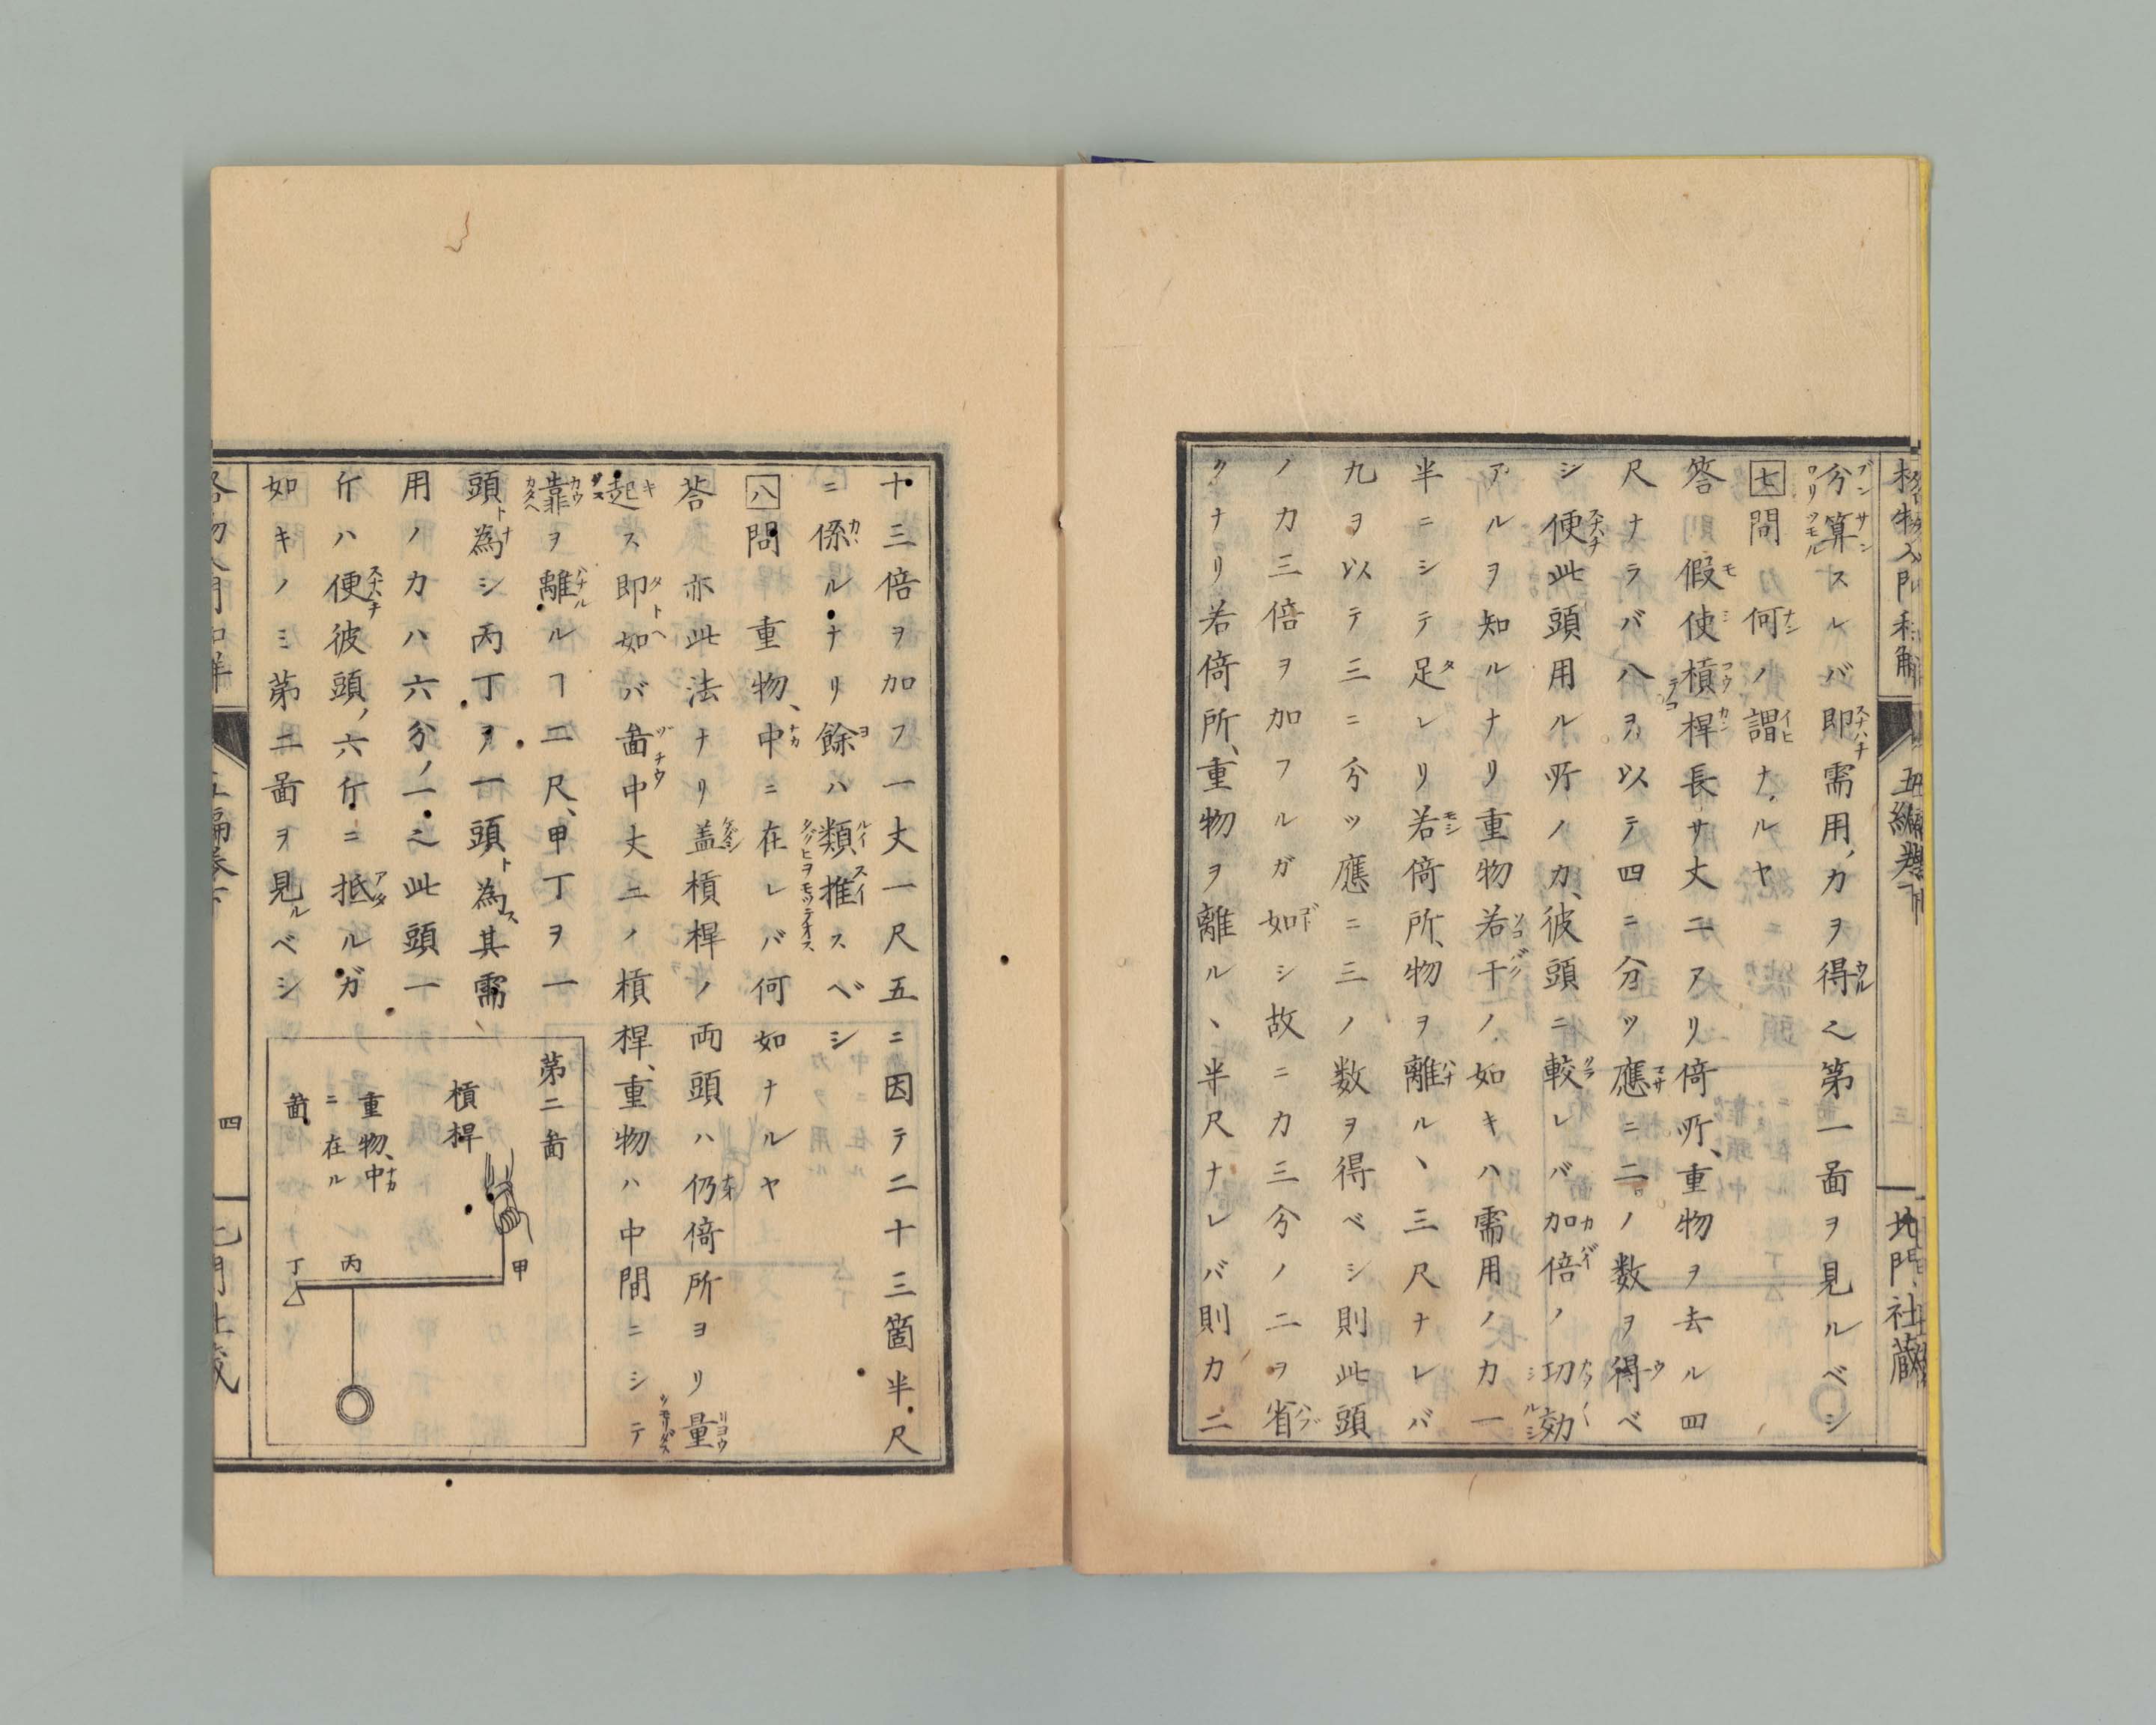 格物入門和解
五編巻下
北門社蔵
分算スレバ即需用ノ力ヲ得ベシ第一啚ヲ見ルベシ
七問 何ノ謂ナルヤ
答 假使槓桿長サ丈二アリ倚所重物ヲ去ル四
尺ナラバ八ヲ以テ四ニ分ツ應ニ二ノ数ヲ得ベ
シ便此頭用ル所ノ力彼頭ニ較レバ加倍ノ功効
アルヲ知ルナリ重物若干ノ如キハ需用ノ力一
半ニシテ足レリ若倚所物ヲ離ル丶三尺ナレバ
九ヲ以テ三ニ分ツ應ニ三ノ数ヲ得ベシ則此頭
ノ力三倍ヲ加フルガ如シ故ニ力三分ノ二ヲ省
クナリ若倚所重物ヲ離ル丶半尺ナレバ則力二
十三倍ヲ加フ一丈一尺五ニ因テ二十三箇半尺
ニ係ルナリ餘ハ類推スベシ
八問 重物中ニ在レバ何如ナルヤ
答 亦此法ナリ盖槓桿ノ両頭ハ仍倚所ヨリ量
起ス即如バ啚中丈二ノ槓桿重物ハ中間ニシテ
靠ヲ離ルヿ二尺甲丁ヲ一
頭ト為シ丙丁ヲ一頭ト為ス其需
用ノ力ハ六分ノ一之此頭一
斤ハ便彼頭ノ六斤ニ抵ルガ
如キノミ第二啚ヲ見ルベシ
第二啚
槓桿
重物中
ニ在ル
啚
甲
丙
丁
四